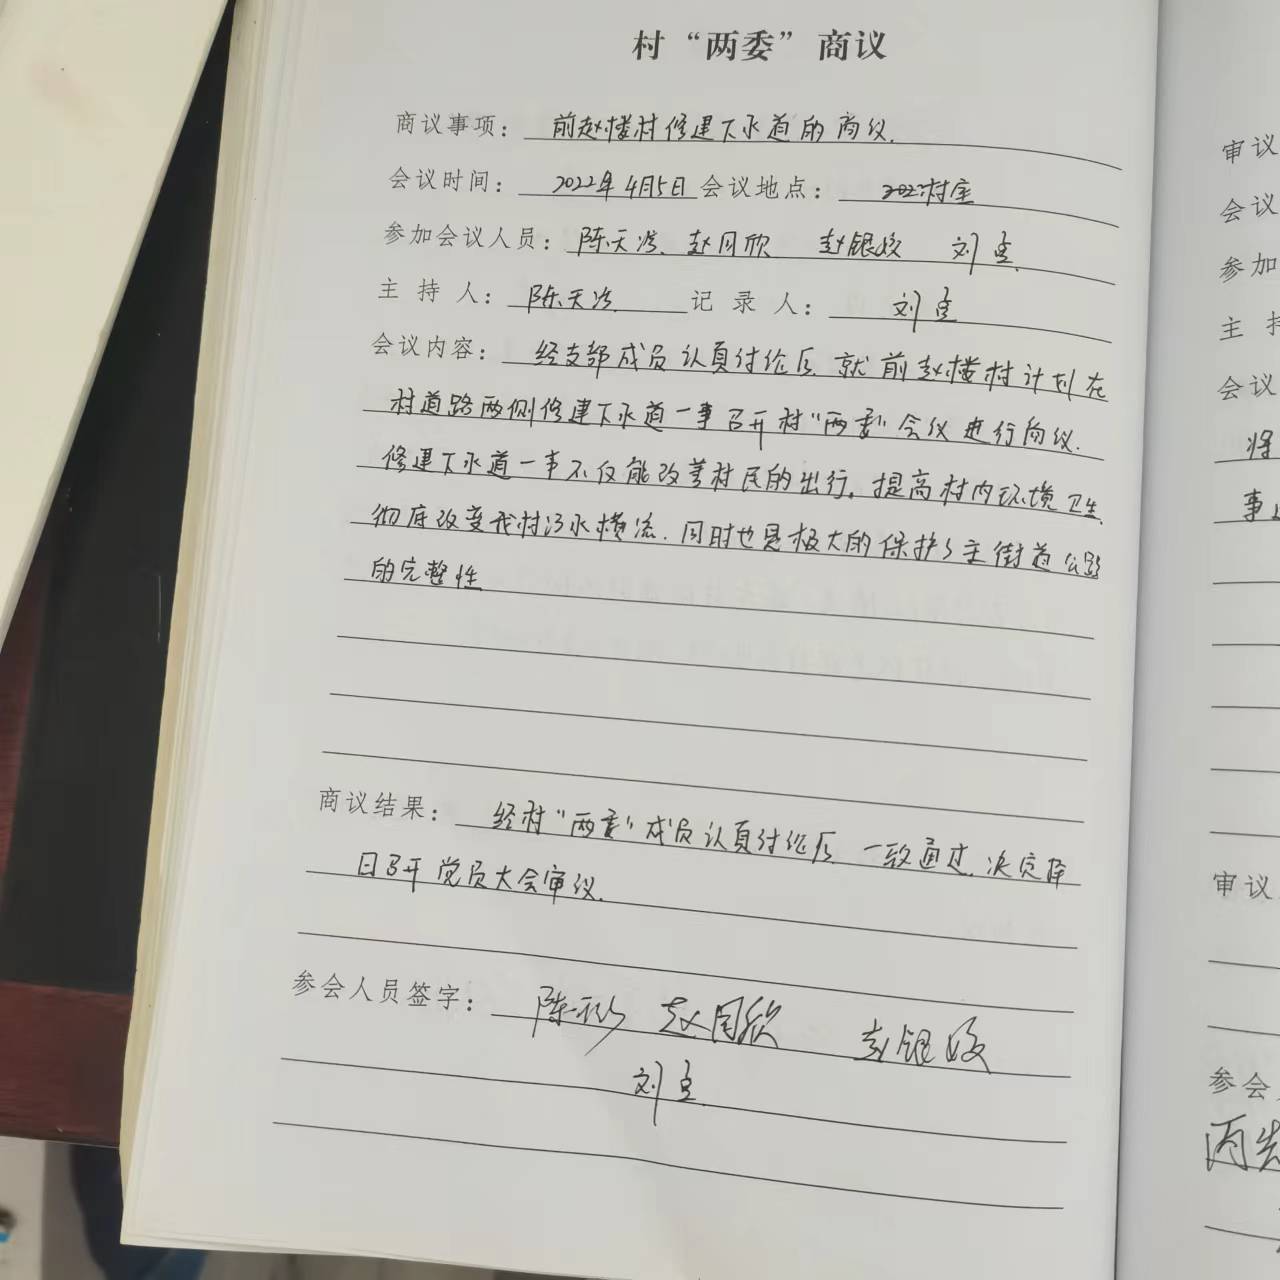 村“两委”商议
商议事项：前赵楼村修建下水道的商议.
会议时间：2022年4月5日 会议地点：村室
参加会议人员：陈天浩、赵月欣 赵银姣 刘
主 持 人：陈天浩 记 录 人：刘
会议内容：经支部成员认真讨论后，就前赵楼村计划在
村道路两侧修建下水道一事召开村“两委”会议进行商议.
修建下水道一事不仅能改善村民的出行，提高村内环境卫生，
彻底改变我村污水横流，同时也是极大的保护了主街道公路
的完整性
商议结果：经村“两委”成员认真讨论后 一致通过，决定择
日召开党员大会审议.
参会人员签字：陈 赵月欣 赵银姣
刘
审议
会议
参加
主 持
会议
将
事
审议
参会
丙